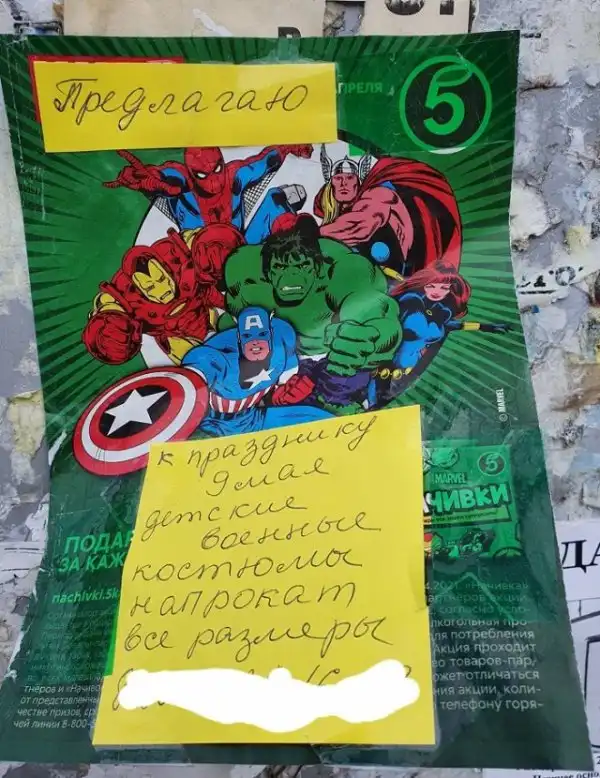 Предлагаю
АПРЕЛЯ
5
A
© MARVEL
к празднику
9 мая
детские
военные
костюмы
напрокат
все размеры
5
MARVEL
АЧИВКИ
ПОДАР
ЗА КАЖ
nachivki.5k
тнёров и «Начиво
от представленны
честве призов, ср
чей линии 8-800-5
4.2021. «Начивка
партнёров акции
согласно усло-
лкогольная про-
для потребления
Акция проходит
во товаров-пар,
может отличаться
ния акции, коли-
телефону горя-
ДА